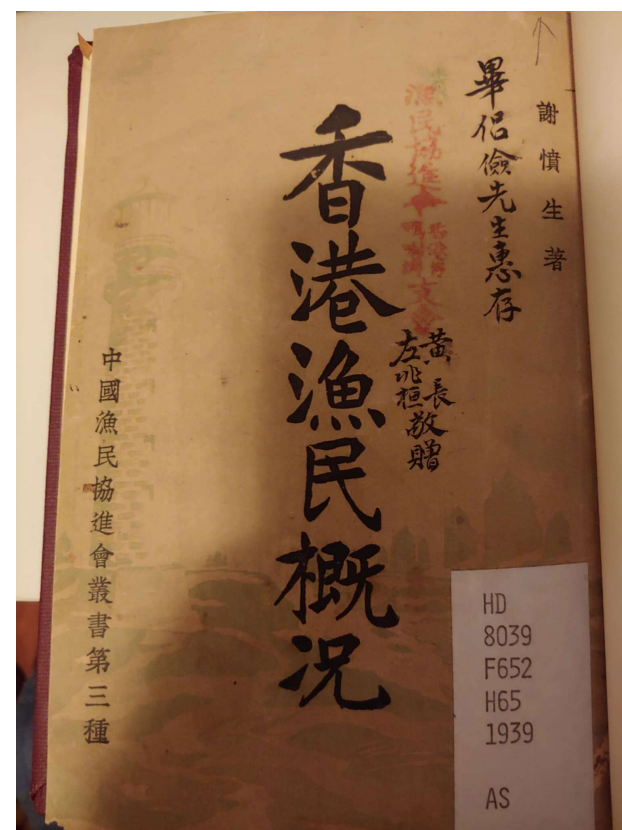 謝憤生著
畢侶儉先生惠存
漁民協進會
香港
支會
黃長
左兆桓敬贈
香港漁民概况
中國漁民協進會叢書第三種
HD
8039
F652
H65
1939
AS